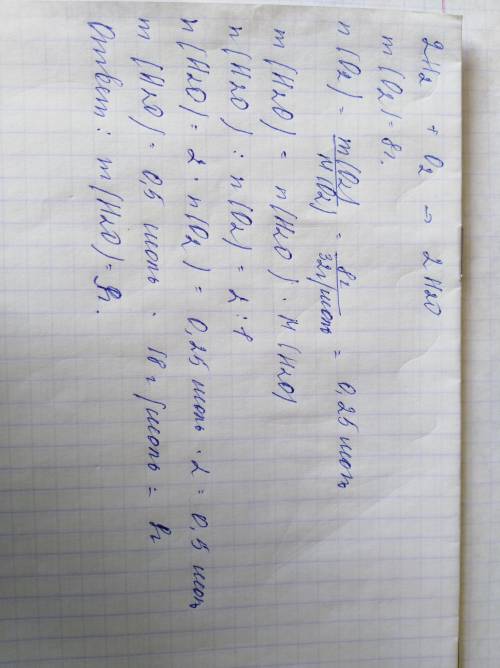 2H2 + O2 → 2H2O
m(O2) = 8г.
n(O2) = m(O2)/M(O2) = 8г/32г/моль = 0,25 моль
m(H2O) = n(H2O) · M(H2O)
n(H2O) : n(O2) = 2:1
n(H2O) = 2 · n(O2) = 0,25 моль · 2 = 0,5 моль
m(H2O) = 0,5 моль · 18 г/моль = 9г
Ответ: m(H2O) = 9г.